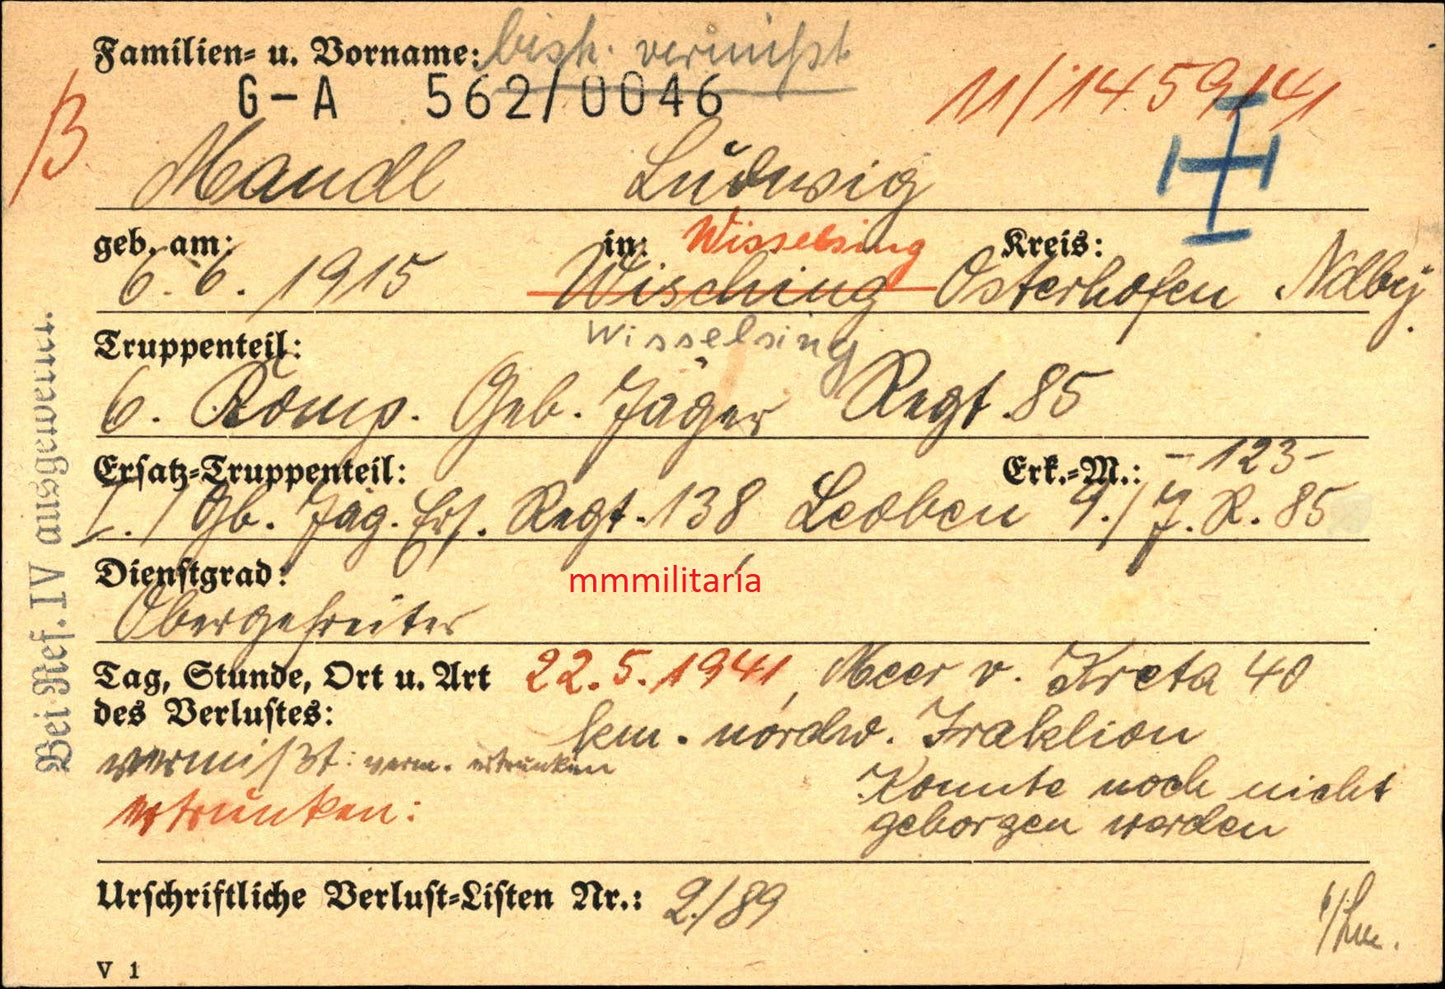 Familien- u. Vorname: bish. vermißt
G-A 562/0046
11/14591/41
B
Mandl Ludwig
geb. am: in: Wisselsing Kreis:
6. 6. 1915 Wisching Osterhofen Ndby.
Wisselsing
Truppenteil:
6. Komp. Geb. Jäger Regt. 85
Ersatz-Truppenteil: Erk.-M.: -123-
I./Gb. Jäg. Ers. Regt. 138 Leoben 9./J.R. 85
Dienstgrad:
mmmilitaria
Obergefreiter
Tag, Stunde, Ort u. Art 22.5.1941, Meer v. Kreta 40
des Verlustes: km. nördw. Iraklion
vermißt: verm. ertrunken
ertrunken: Konnte noch nicht
geborgen werden
Urschriftliche Verlust-Listen Nr.: 2/89
V 1
Bei Ref. IV ausgewertet.